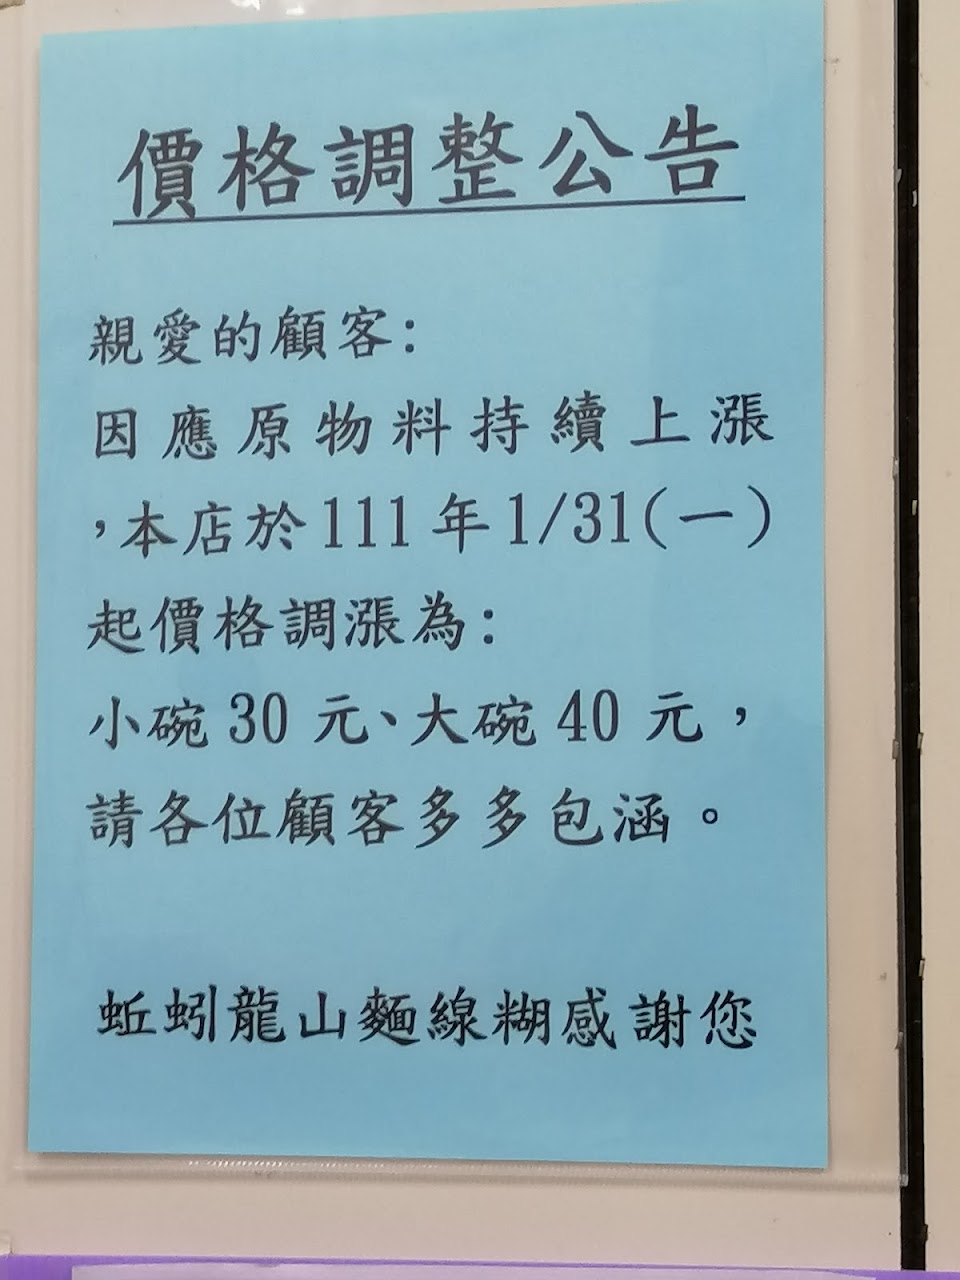 價格調整公告
親愛的顧客:
因應原物料持續上漲
，本店於111年1/31(一)
起價格調漲為:
小碗30元、大碗40元，
請各位顧客多多包涵。
蚯蚓龍山麵線糊感謝您